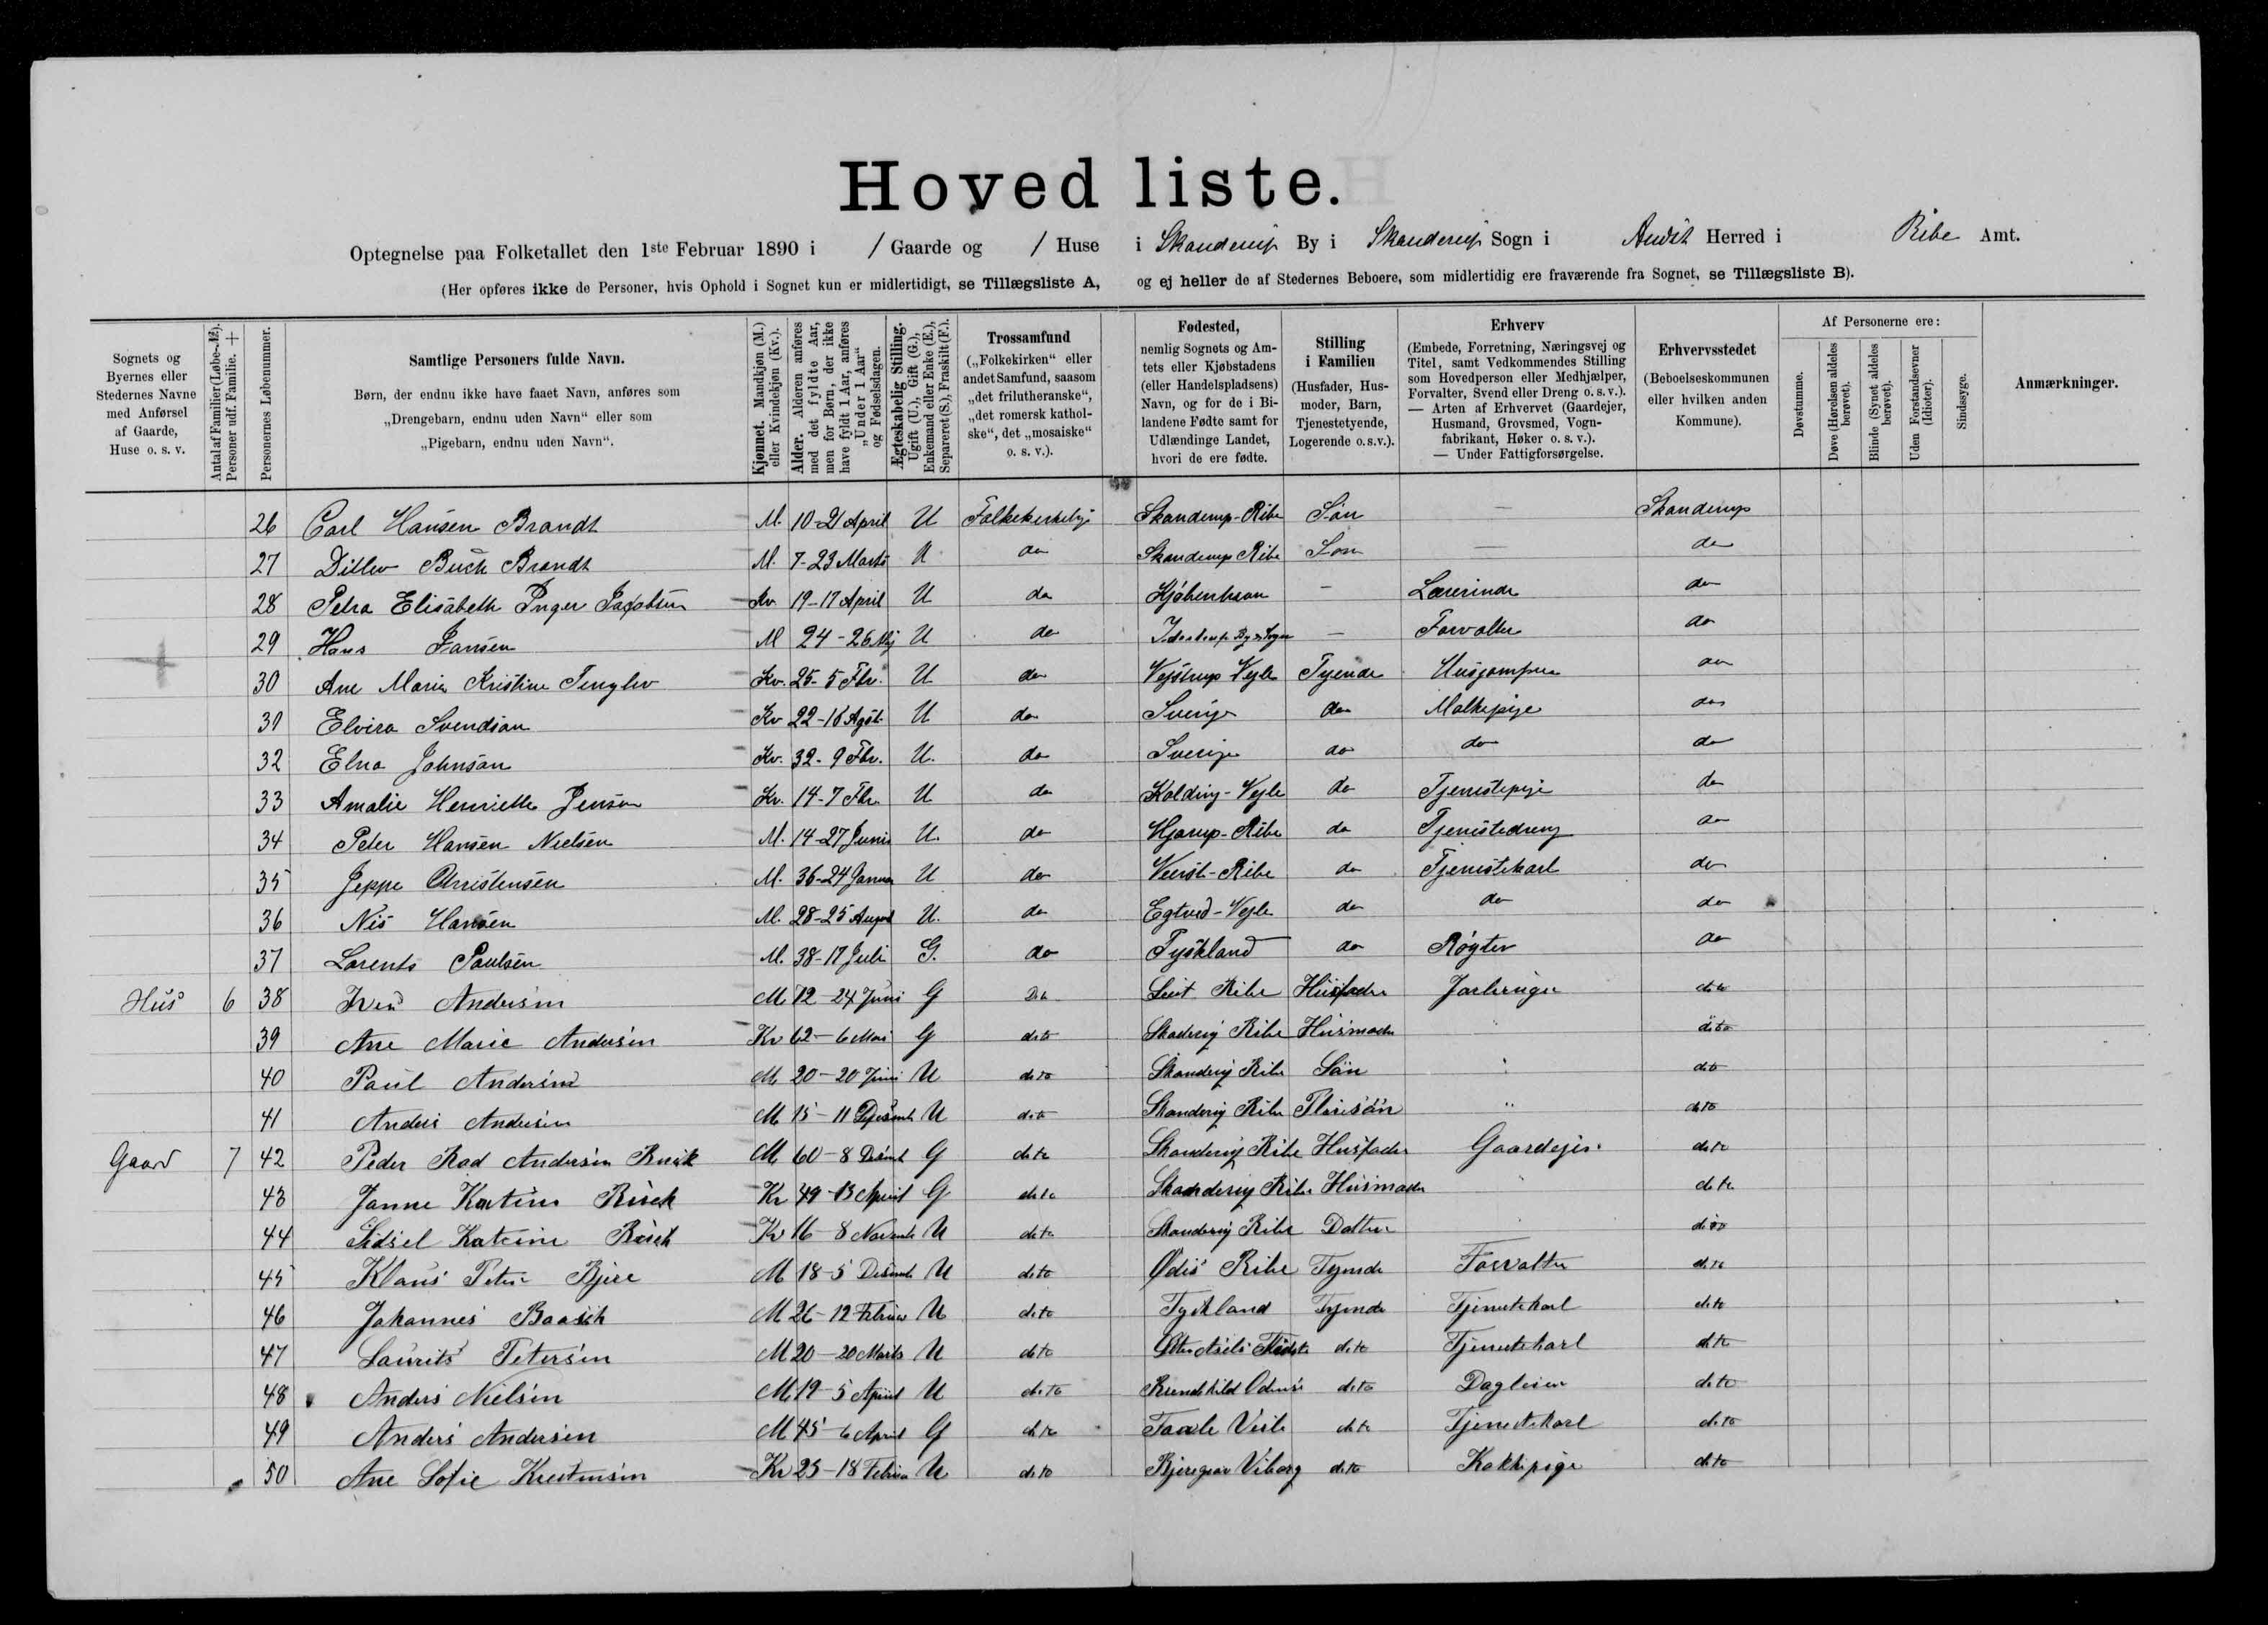 Hoved liste.
Optegnelse paa Folketallet den 1ste Februar 1890 i / Gaarde og / Huse i Skanderup By i Skanderup Sogn i Andst Herred i Ribe Amt.
(Her opføres ikke de Personer, hvis Ophold i Sognet kun er midlertidigt, se Tillægsliste A, og ej heller de af Stedernes Beboere, som midlertidig ere fraværende fra Sognet, se Tillægsliste B).
Sognets og Byernes eller Stedernes Navne med Anførsel af Gaarde, Huse o. s. v.
Antal af Familier (Løbe-№). Personer udf. Familie. +
Personernes Løbenummer.
Samtlige Personers fulde Navn.
Børn, der endnu ikke have faaet Navn, anføres som „Drengebarn, endnu uden Navn“ eller som „Pigebarn, endnu uden Navn“.
Kjønnet. Mandkjøn (M.) eller Kvindekjøn (Kv.).
Alder. Alderen anføres med det fyldte Aar, men for Børn, der ikke have fyldt 1 Aar, anføres „Under 1 Aar“ og Fødselsdagen.
Ægteskabelig Stilling. Ugift (U.), Gift (G.), Enkemand eller Enke (E.), Separeret (S.), Fraskilt (F.).
Trossamfund („Folkekirken“ eller andet Samfund, saasom „det frilutheranske“, „det romersk katholske“, det „mosaiske“ o. s. v.).
Fødested, nemlig Sognets og Amtets eller Kjøbstadens (eller Handelspladsens) Navn, og for de i Bilandene Fødte samt for Udlændinge Landet, hvori de ere fødte.
Stilling i Familien (Husfader, Husmoder, Barn, Tjenestetyende, Logerende o.s.v.).
Erhverv (Embede, Forretning, Næringsvej og Titel, samt Vedkommendes Stilling som Hovedperson eller Medhjælper, Forvalter, Svend eller Dreng o. s. v.). — Arten af Erhvervet (Gaardejer, Husmand, Grovsmed, Vognfabrikant, Høker o. s. v.). — Under Fattigforsørgelse.
Erhvervsstedet (Beboelseskommunen eller hvilken anden Kommune).
Af Personerne ere:
Døvstumme.
Døve (Hørelsen aldeles berøvet).
Blinde (Synet aldeles berøvet).
Uden Forstandsevner (Idioter).
Sindssyge.
Anmærkninger.
26 Carl Hansen Brandt M. 10-21 April U Skanderup-Ribe Søn — Skanderup
27 Ditlev Buch Brandt M. 7-23 Marts U do Skanderup Ribe Søn — do
28 Petra Elisabeth Inger Jacobsen Kv 19-17 April U do Kjøbenhavn — Lærerinde do
29 Hans Jansen M 24-26 U do — Forvalter do
30 Ane Marie Kristine Kv. 25-5 Fbr. U do Vejstrup Vejle Tyende Husjomfru do
31 Elvira Svendson Kv 22-16 Agst. U do Sverige do Malkepige do
32 Elna Johnson Kv. 32-9 Fbr. U. do Sverige do do do
33 Amalie Henriette Jensen Kv. 14-7 Fbr. U do Kolding-Vejle do Tjenestepige do
34 Peter Hansen Nielsen M. 14-27 Juni U. do Hjarup-Ribe do Tjenestedreng do
35 Jeppe Christensen M. 36-24 Januar U do Veerst-Ribe do Tjenestekarl do
36 Nis Hansen M. 28-25 August U. do Egtved-Vejle do do do
37 Lorents Paulsen M. 38-17 Juli G. do Tyskland do Røgter do
Hus 6 38 Iver Andersen M 72-24 Juni G Dito Ribe Husfader dito
39 Ane Marie Andersen Kv 62-6 Mai G dito Skanderup Ribe Husmoder " dito
40 Paul Andersen M 20-20 Juni U dito Skanderup Ribe Søn " dito
41 Anders Andersen M 15-11 U dito Skanderup Ribe Pleiesøn " dito
Gaard 7 42 Peder Rad Andersen M 60-8 G dito Skanderup Ribe Husfader Gaardejer dito
43 Janne Katrine Kv 49-13 April G dito Skanderup Ribe Husmoder " dito
44 Sidsel Katrine Kv 16-8 Novemb U dito Skanderup Ribe Datter dito
45 Klaus Peter Bjere M 18-5 Desemb U dito Ødis Ribe Tyende Forvalter dito
46 Johannes Baasch M 26-12 Februar U dito Tyskland Tyende Tjenestekarl dito
47 Laurits Petersen M 20-20 Marts U dito dito Tjenestekarl dito
48 Anders Nielsen M 19-5 April U dito dito dito
49 Anders Andersen M 45-6 April G dito Veile dito Tjenestekarl dito
50 Ane Sofie Krestensen Kv 25-18 Februar U dito Viborg dito Kokkepige dito